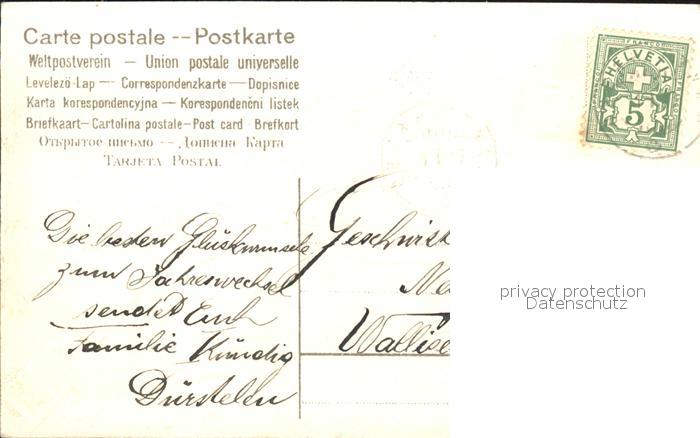 Carte postale -- Postkarte
Weltpostverein — Union postale universelle
Levelező-Lap — Correspondenzkarte — Dopisnice
Karta korespondencyjna — Korespondenční listek
Briefkaart — Cartolina postale — Post card Brefkort
Открытое письмо -- Дописна Карта
TARJETA POSTAL
FRANCO
HELVETIA
5
Die besten Glückwünsche
zum Jahreswechsel
sendet Euch
Familie Kündig
Dürstelen
Geschwist
Ne
Wallise
privacy protection
Datenschutz